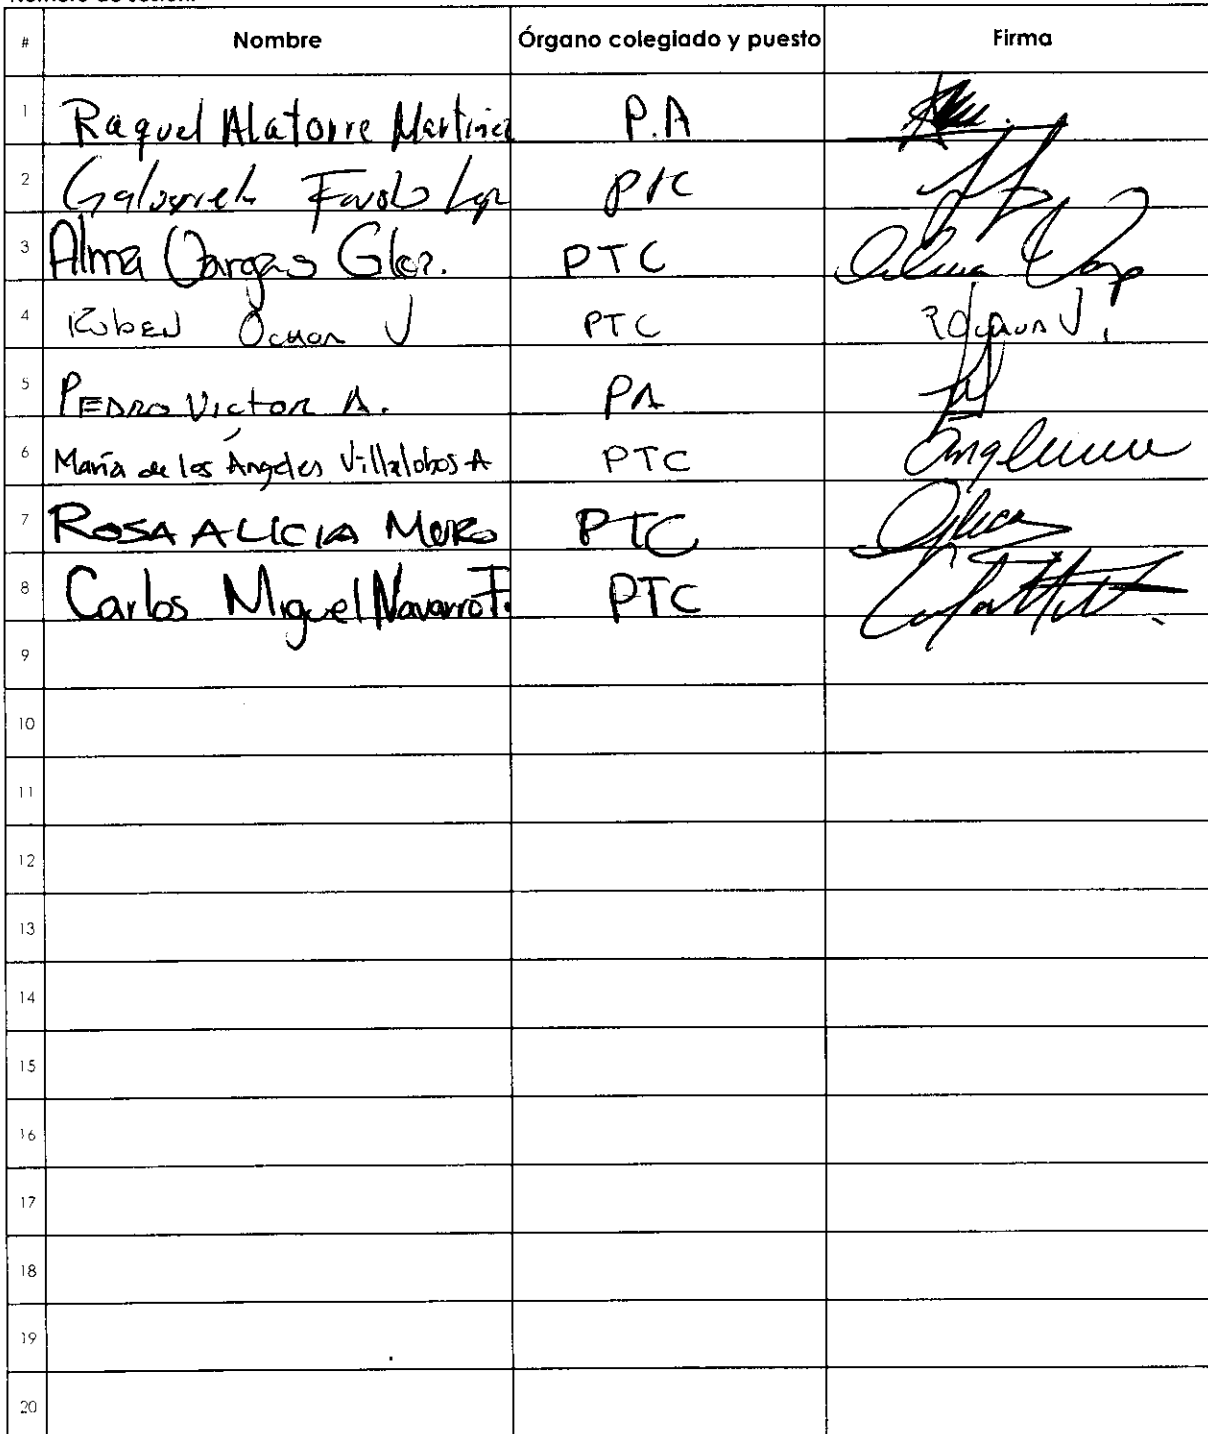 # Nombre Órgano colegiado y puesto Firma
1 Raquel Alatorre Martínez P.A
2 PTC
3 Alma Vargas Glez. PTC
4 Ruben Ochoa V PTC
5 PEDRO VICTOR A. PA
6 María de los Ángeles Villalobos A PTC
7 ROSA ALICIA MURO PTC
8 Carlos Miguel Navarro F. PTC
9
10
11
12
13
14
15
16
17
18
19
20